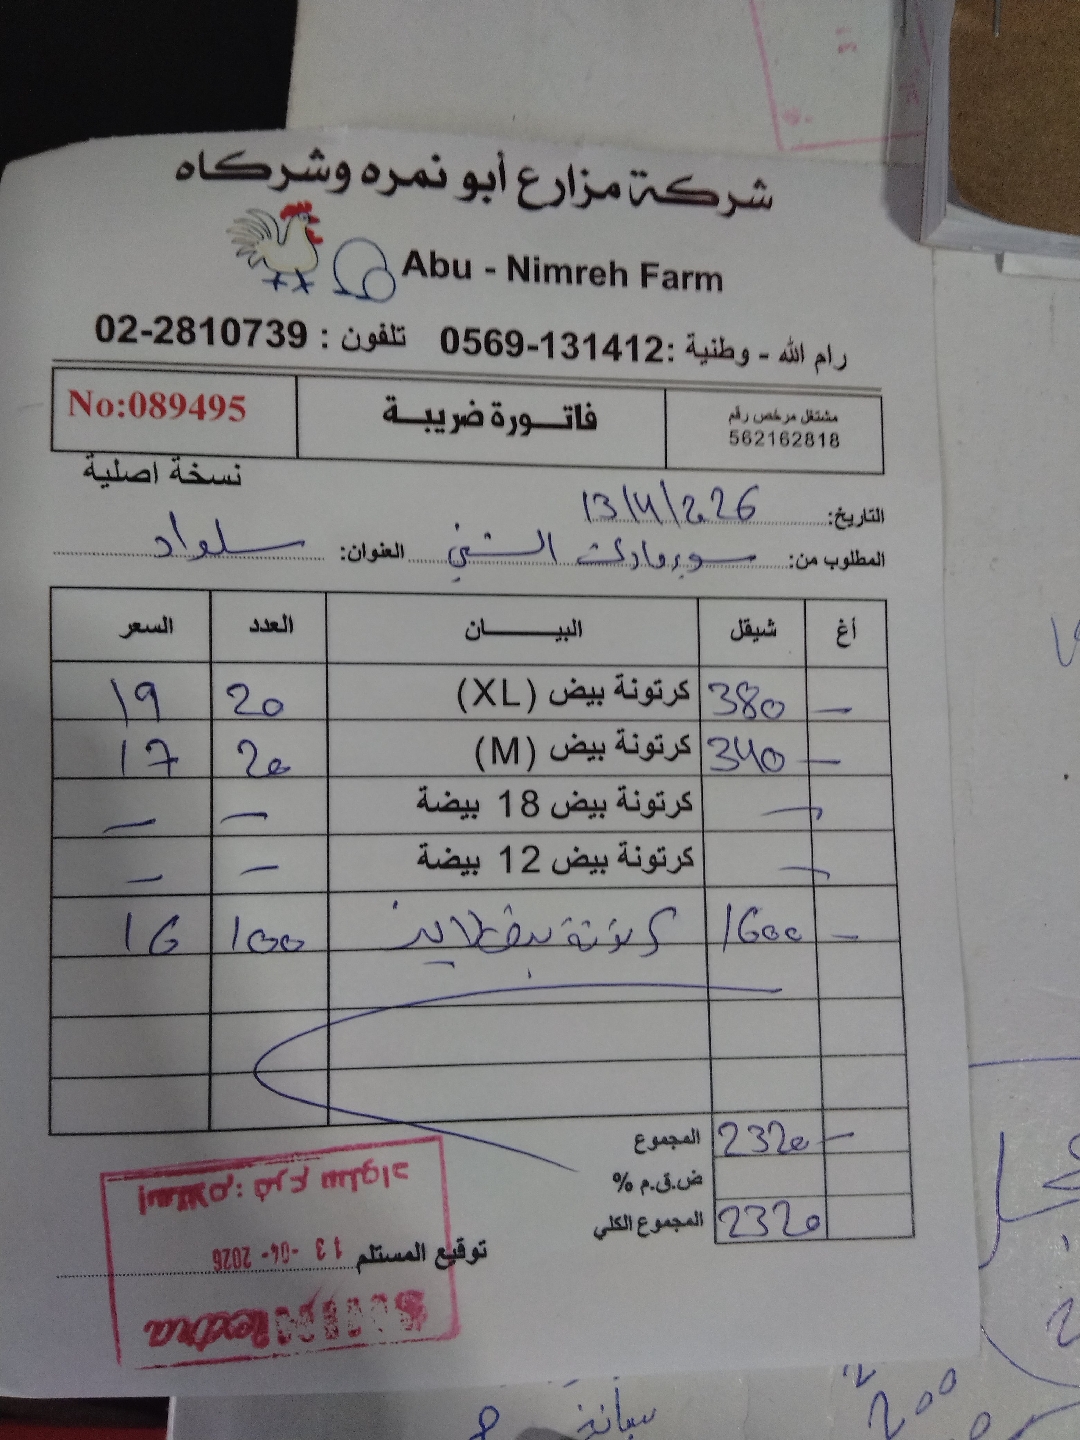 شركة مزارع أبو نمره وشركاه
Abu - Nimreh Farm
رام الله - وطنية :0569-131412 تلفون : 02-2810739
مشتغل مرخص رقم 562162818
فاتورة ضريبة
No:089495
نسخة اصلية
التاريخ: 13/4/2026
المطلوب من: سوبرماركت السني العنوان: سلواد
أغ شيقل البيان العدد السعر
— 380 كرتونة بيض (XL) 20 19
— 340 كرتونة بيض (M) 20 17
— كرتونة بيض 18 بيضة — —
— كرتونة بيض 12 بيضة — —
— 1600 كرتونة بيض 100 16
المجموع 2320 —
ض.ق.م %
المجموع الكلي 2320
توقيع المستلم
استلام: فرع سلواد
13 -04- 2026
extra